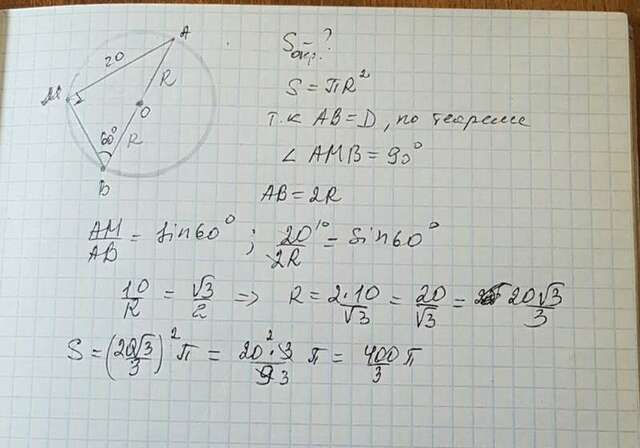 A
20
R
M
O
60°
R
B
Sокр. = ?
S = πR²
т.к AB = D, по теореме
∠ AMB = 90°
AB = 2R
AM/AB = sin60° ; 20/2R 10 = sin60°
10/R = √3/2 => R = 2·10/√3 = 20/√3 = 20√3/3
S = (20√3/3)² π = 20²·3/9 3 π = 400/3 π